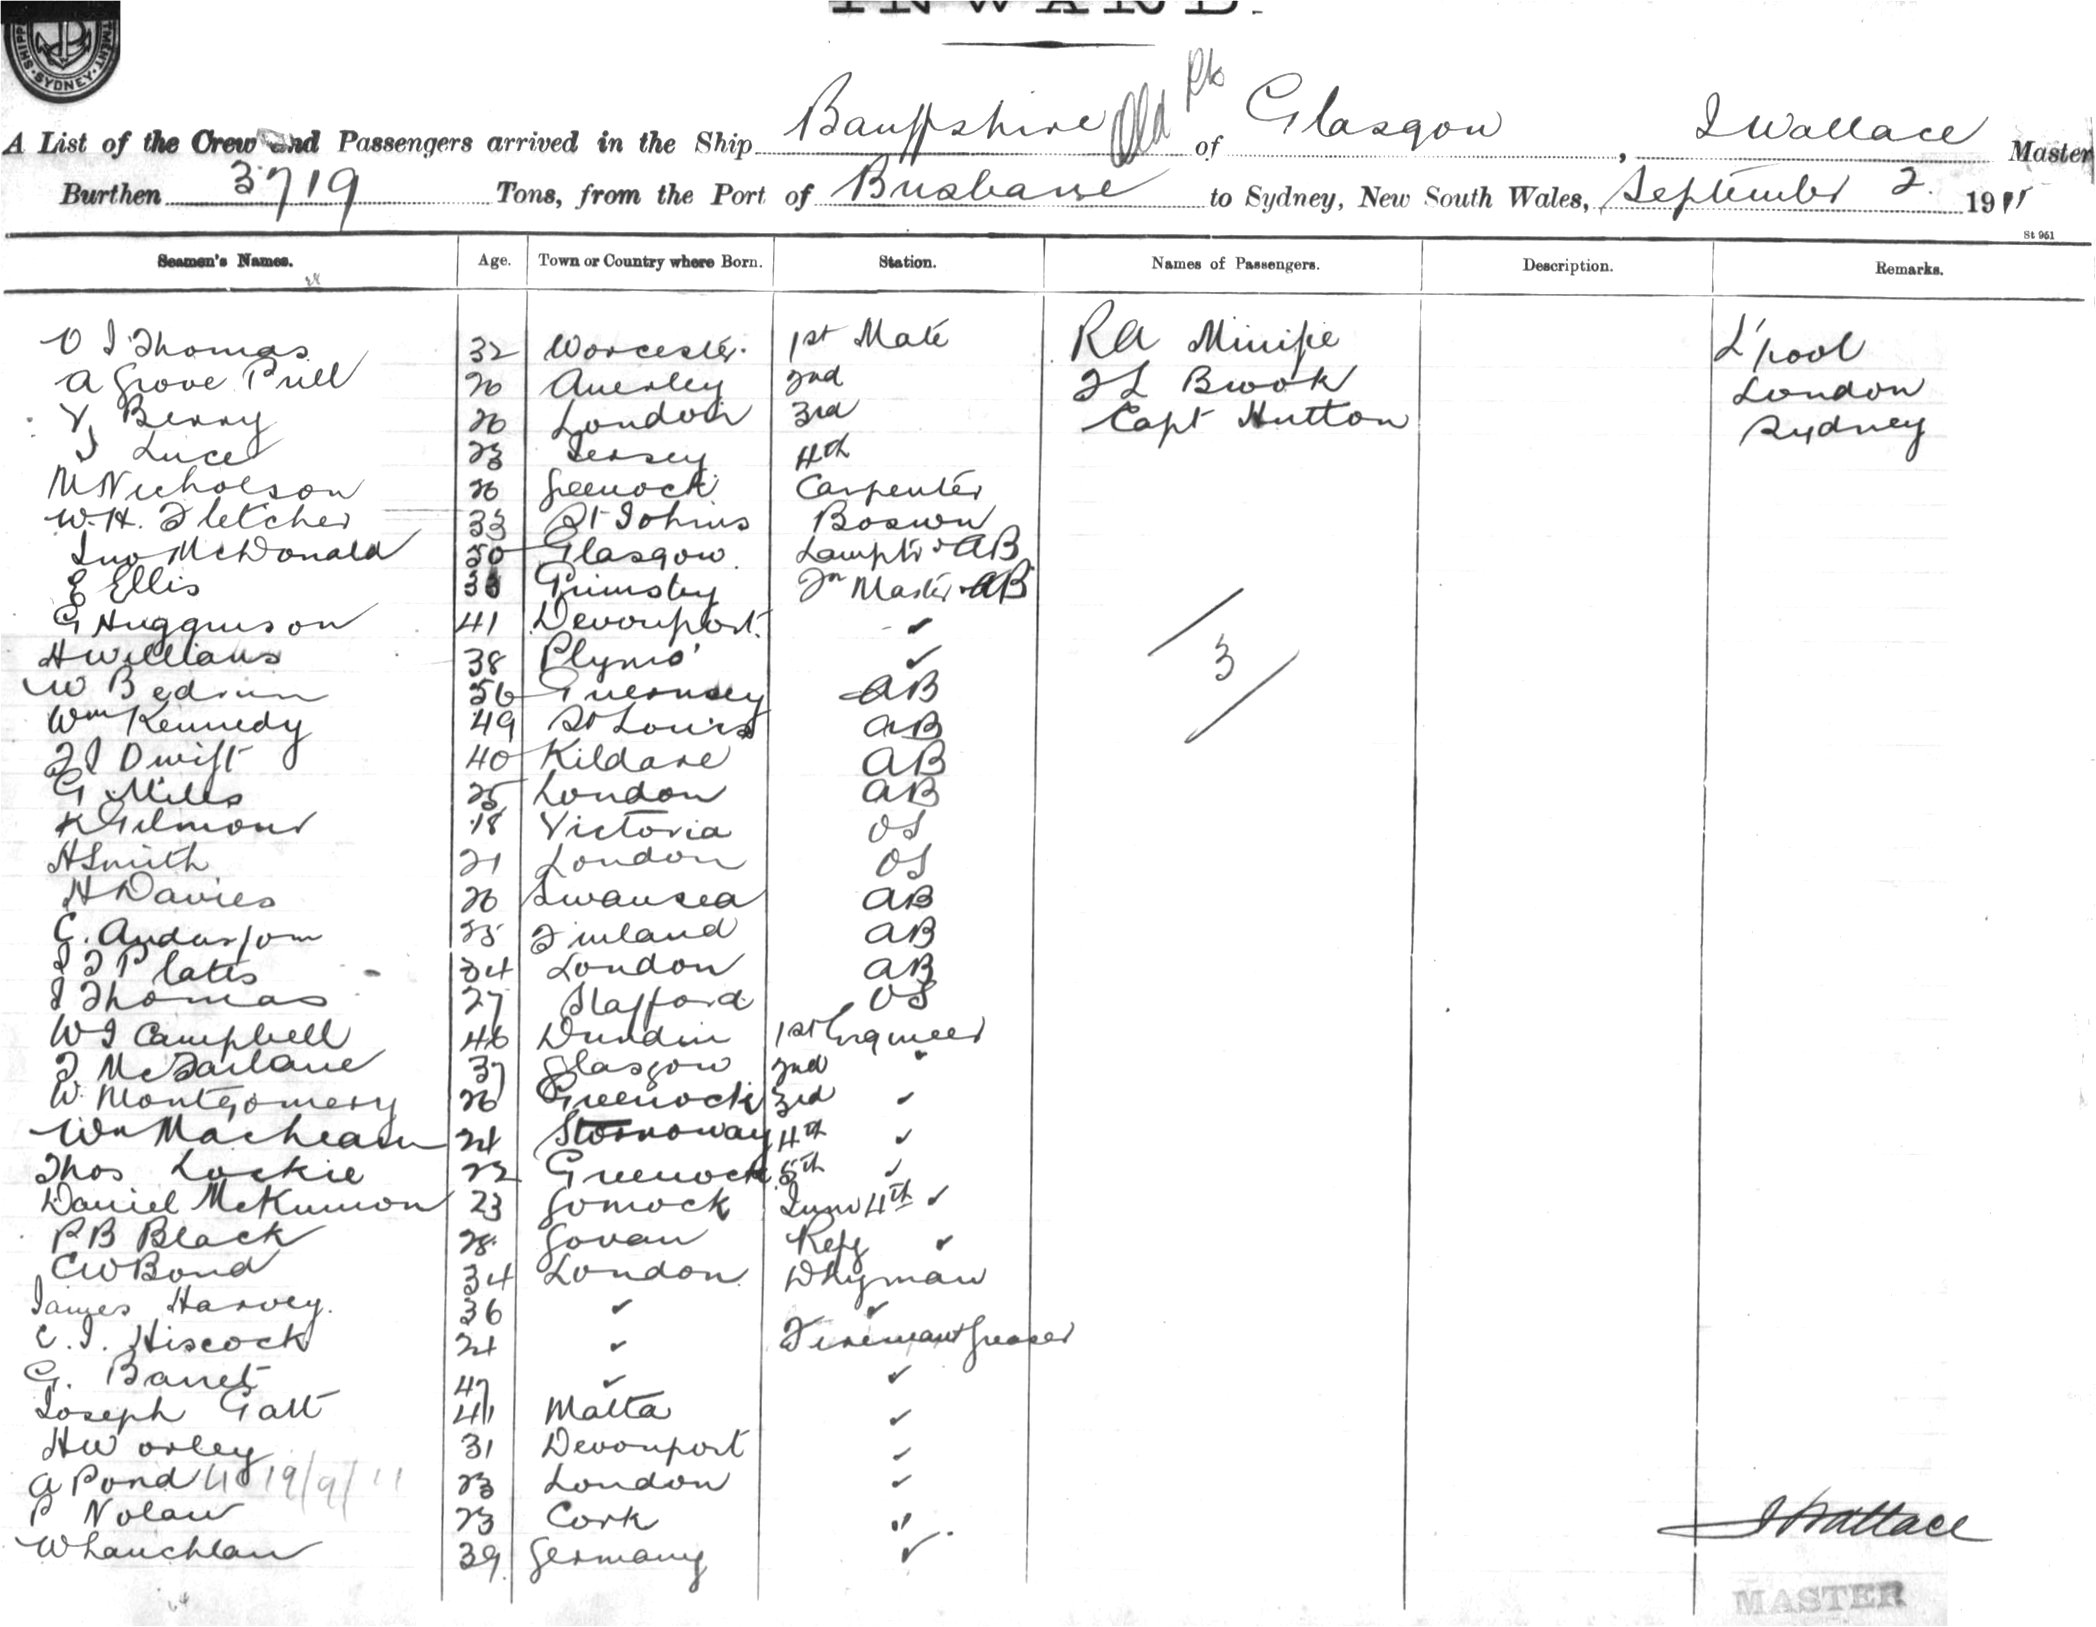 INWARD.
SHIPP · SYDNEY · TMENT
A List of the Crew and Passengers arrived in the Ship Banffshire Old of Glasgow, J Wallace Master
Burthen 3719 Tons, from the Port of Brisbane to Sydney, New South Wales, September 2 1911
St 951
Seamen's Names. Age. Town or Country where Born. Station. Names of Passengers. Description. Remarks.
O J Thomas 32 Worcester. 1st Mate RA Minifie L'pool
A Grove Prill 26 Anerley 2nd J L Brook London
V Berry 26 London 3rd Capt Hutton Sydney
J Luce 23 Jersey 4th
M Nicholson 26 Greenock Carpenter
W. H. Fletcher 33 St Johns Boswn
Jno McDonald 50 Glasgow Lamptr & AB
E Ellis 33 Grimsby Qr Master & AB
G Hugginson 41 Devonport. ✓
H Williams 38 Plymo' ✓
3
W Bedrum 56 Guernsey AB
Wm Kennedy 49 St Louis AB
40 Kildare AB
G Miles 25 London AB
K Gilmour 18 Victoria OS
H Smith 21 London OS
H Davies 26 Swansea AB
C. Andersson 25 Finland AB
34 London AB
J Thomas 27 Stafford OS
W J Campbell 46 Dundee 1st Engineer
J McFarlane 37 Glasgow 2nd ✓
W. Montgomery 26 Greenock 3rd ✓
Wm MacLean 24 Stornoway 4th ✓
Thos Lockie 22 Greenock 5th ✓
Daniel McKinnon 23 Gorrock Junr 4th ✓
P B Black 28 Govan Refg ✓
C W Bond 34 London. Dkyman
James Harvey. 36 ✓ ✓
C. J. Hiscock 24 ✓ Fireman & Greaser
G. Barret 47 ✓ ✓
Joseph Gatt 41 Malta ✓
H Worley 31 Devonport ✓
A Pond 19/9/11 23 London ✓
P Nolan 23 Cork "
W Lauchlan 39 Germany ✓
J Wallace
MASTER